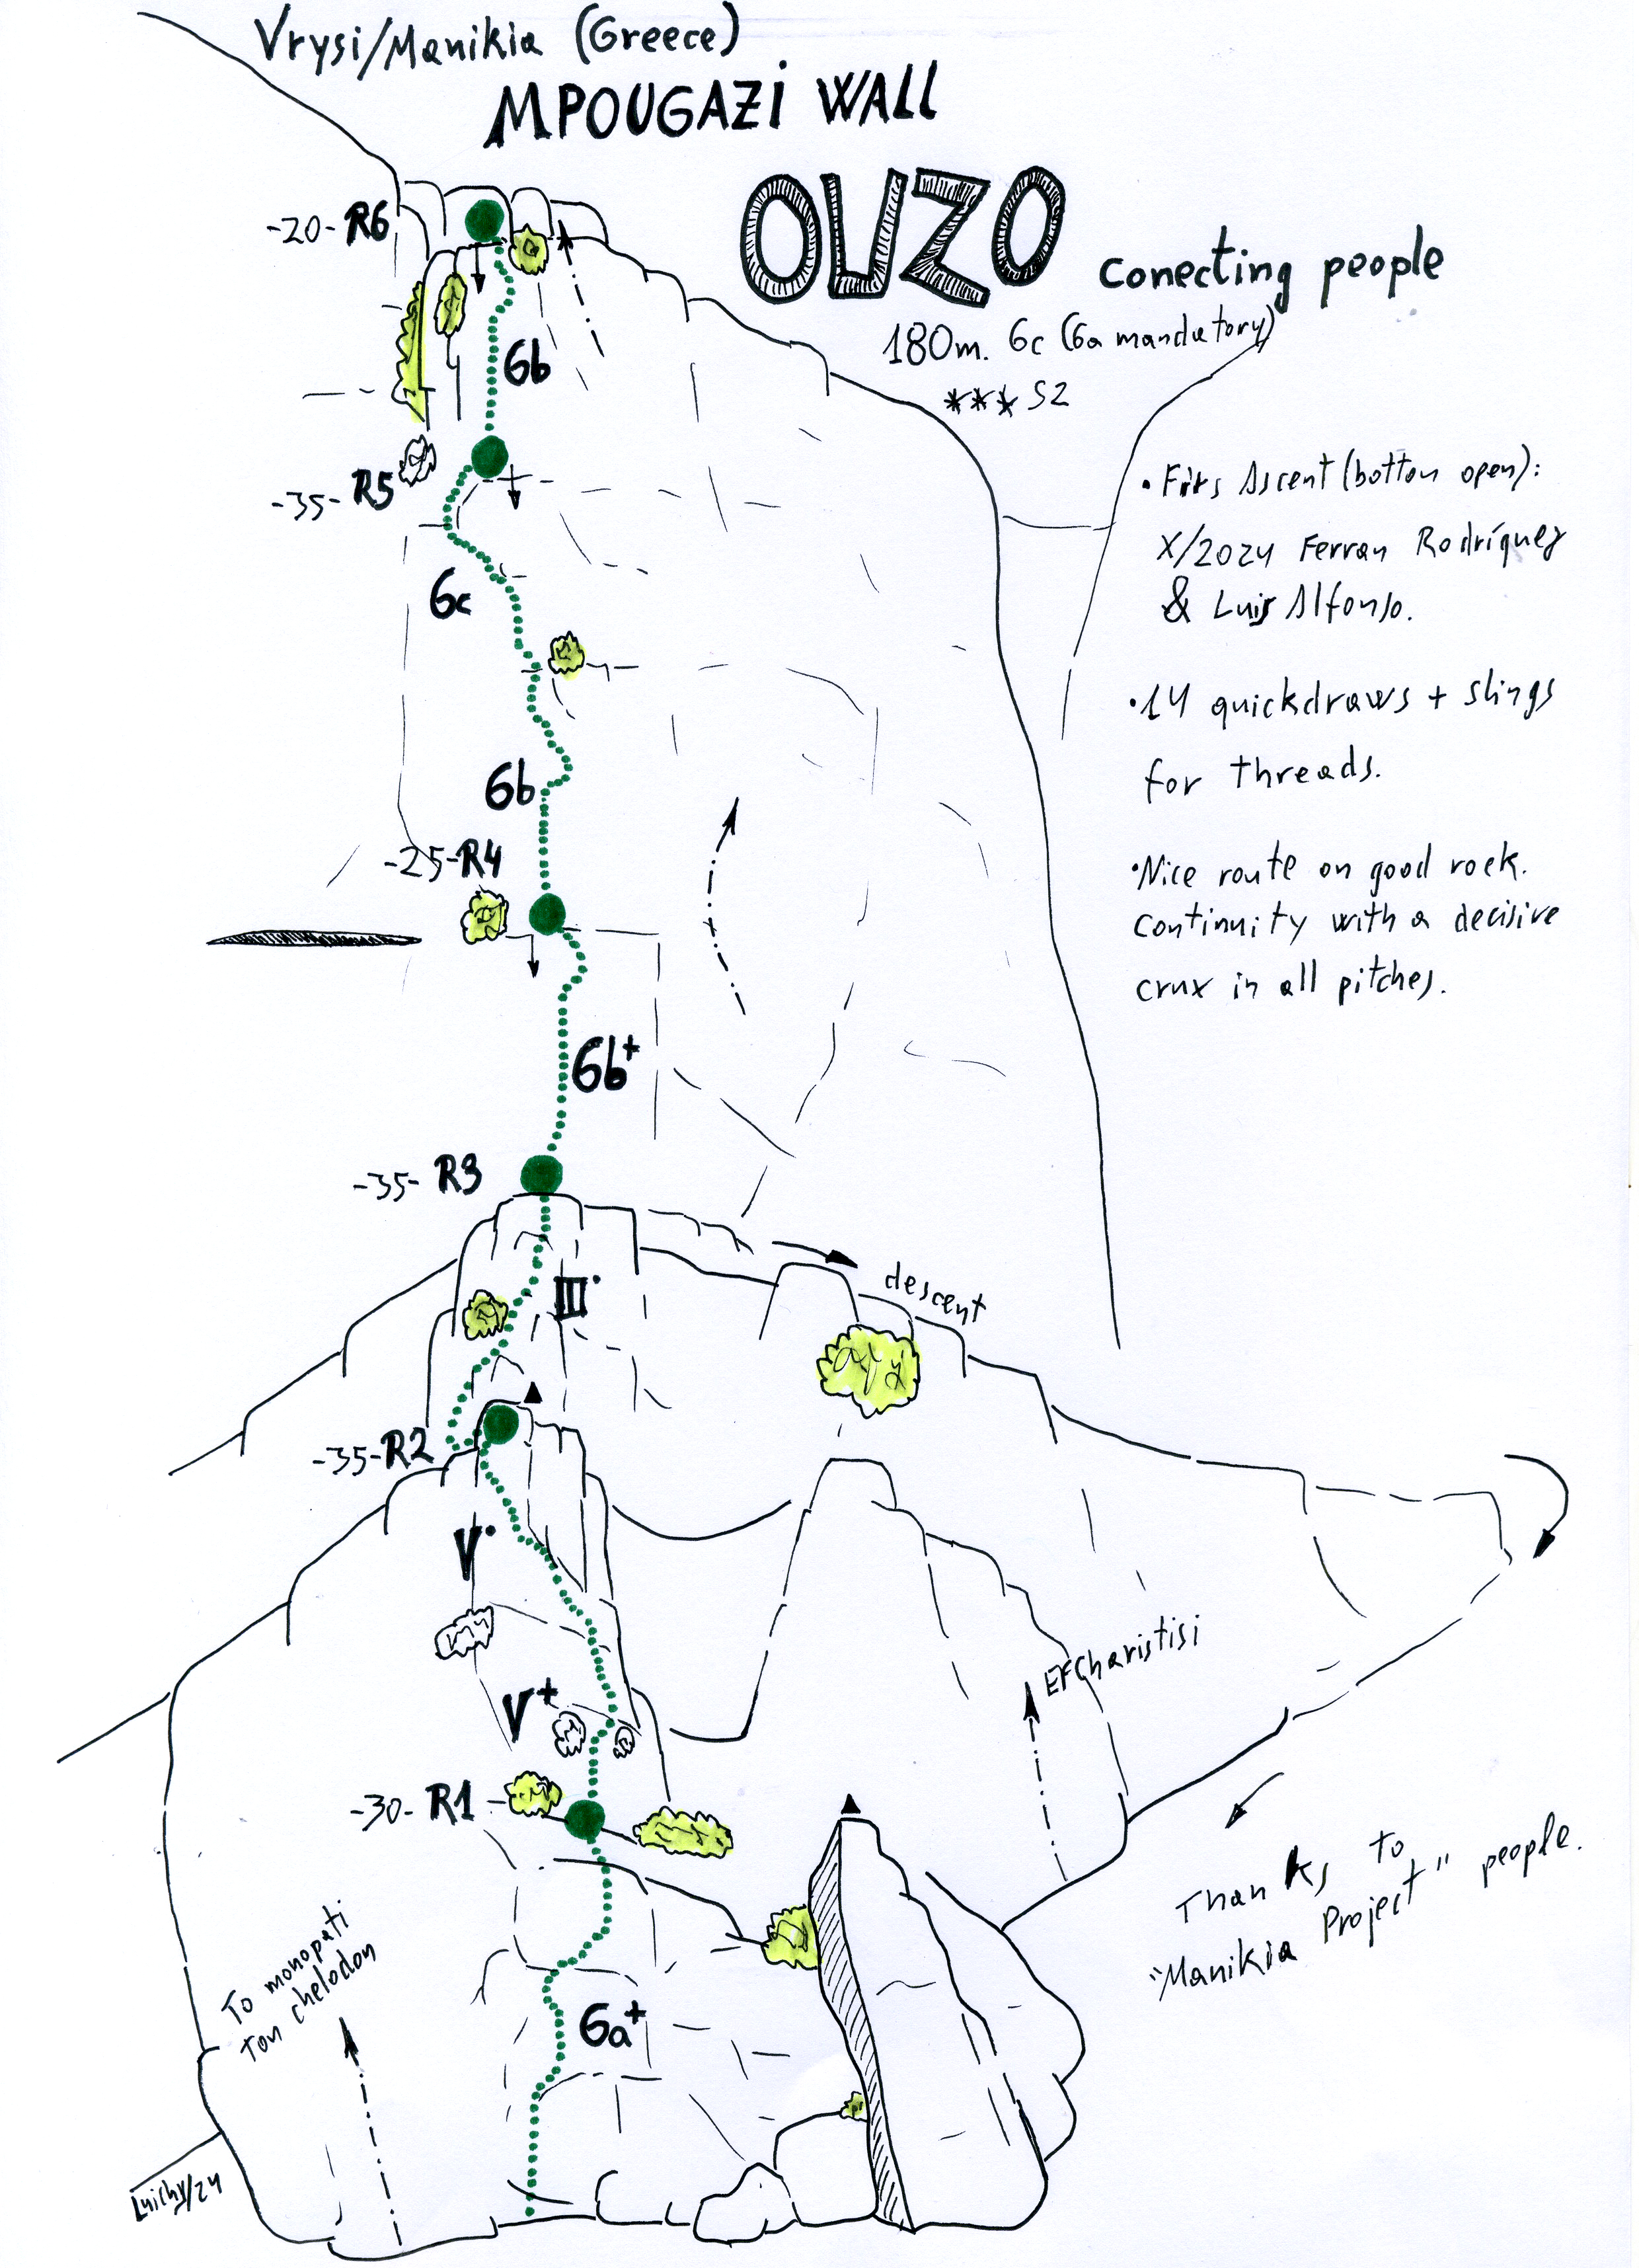 Vrysi/Manikia (Greece)
MPOUGAZi WALL
OUZO conecting people
180m. 6c (6a mandatory)
*** S2
-20- R6
6b
-35- R5
6c
6b
-25- R4
6b+
-35- R3
III·
descent
-35- R2
V·
V+
-30- R1
6a+
• Firs Ascent (bottom open):
X/2024 Ferran Rodríguez
& Luis Alfonso.
• 14 quickdraws + slings
for threads.
• Nice route on good rock.
continuity with a decisive
crux in all pitches.
EFCharistisi
Thanks to
"Manikia Project" people.
To monopati
ton chelodon
Luichy/24